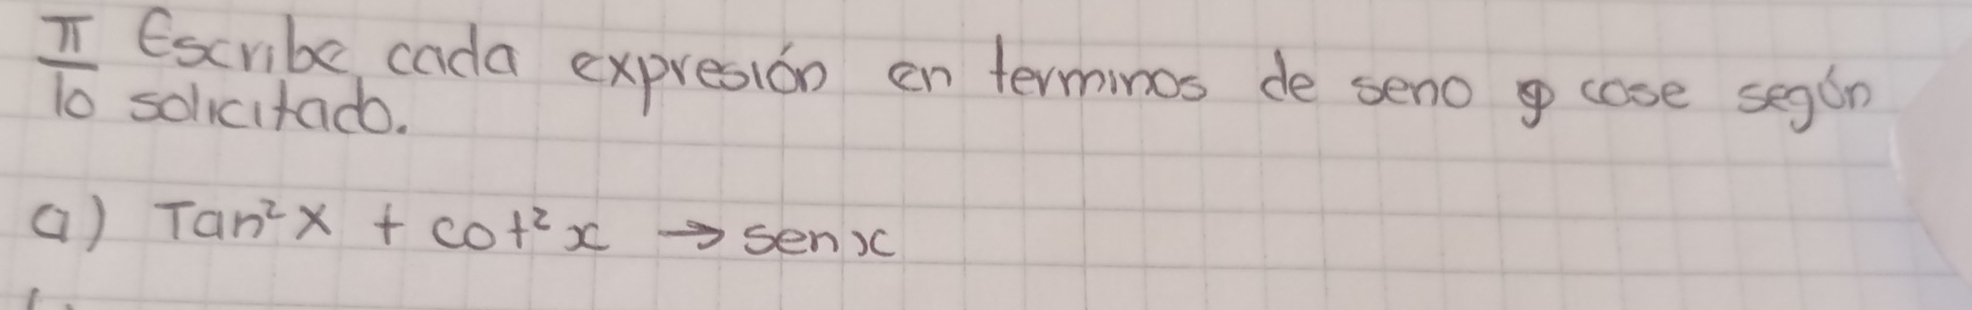 π/10 Escribe cada expresión en terminos de seno y cose según
solicitado.
a) Tan²x + cot²x → senx